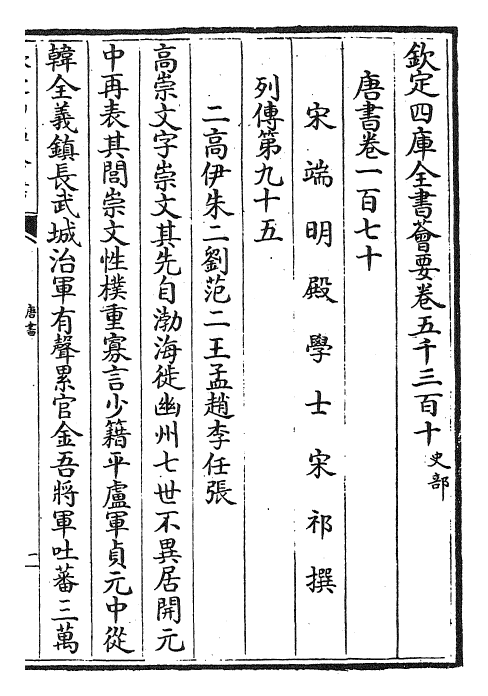 欽定四庫全書薈要卷五千三百十 史部
唐書卷一百七十
宋端明殿學士宋祁撰
列傳第九十五
二高伊朱二劉范二王孟趙李任張
高崇文字崇文其先自渤海徙幽州七世不異居開元
中再表其閭崇文性樸重寡言少籍平盧軍貞元中從
韓全義鎮長武城治軍有聲累官金吾將軍吐蕃三萬
唐書